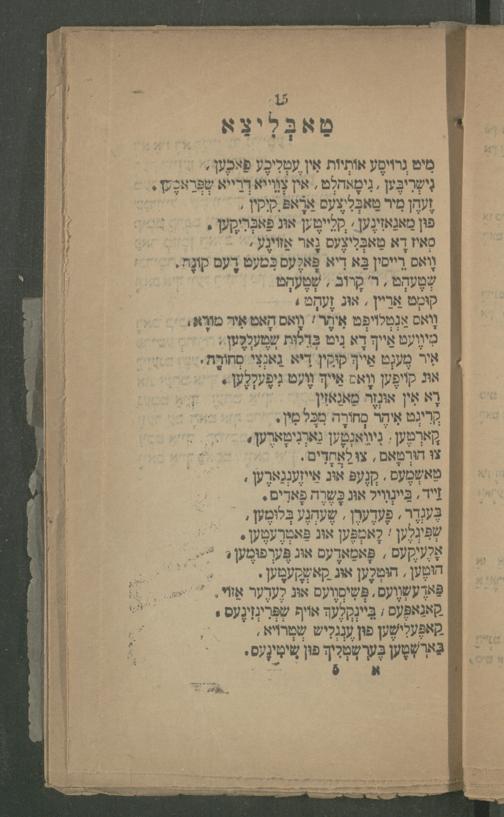 15
טַאבְּלִיצַא
מיט גרויסע אוֹתִיוֹת אין עֶטְלִיכֶע פַּאכֶען,
גִישְׁרִיבֶּען, גִימָאהלְט, אין צְוֵוייא דְרַייא שְׁפְּרַאכֶען.
זֶעהֶן מִיר טַאבְּלִיצֶעס אַרָאפּ קִיקִין,
פון מַאנַאזִינֶען, קְלֵייטֶען אונ פַאבְּרִיקֶען.
סאִיז דָא טַאבְּלִיצֶעס גָאר אַזוֹינֶע,
וָואס רַייסִין בַּא דִיא פָּאלֶעס כִּמְעט דֶעם קוֹנֶה.
שְׁטֶעהְט, ר' קָרוֹב, שְׁטֶעהְט
קוּקְט אַרַיין, אוּנ זֶעהְט,
וָואס אַנְטְלוֹיפְט אִיהֶר? וָואס הָאט אִיר מוֹרָא,
מִיוֶועט אַייךְ דָא נִיט בְּדַלוּת שְׁטֶעלֶען,
אִיר מֶעגְט אַייךְ קוּקִין דִיא גַאנְצֶי סְחוֹרָה,
אוּנ קוֹיפֶען וָואס אַייךְ וֶועט גִיפֶעלֶען.
דָא אִין אוּנְזֶר מַאנַאזִין
קְרִיגְט אִיהֶר סְחוֹרָה מִכָּל מִין.
קָארְטֶען, גִיוַואנְטֶען גַארְנִיטָארֶען,
צוּ הוּרְטָאם, צוּ לַאֲחָדִים.
טַאשְׁמֶעס, קְנֶעפּ אוּנ אַייזֶענְגַארֶען,
זַייד, בַּיינְוִויל אוּנ כְּשֵׁרֶה פָאדִים.
בֶּענְדֶר, פֶעדֶערִן, שֶׁעהְנֶע בְּלוּמֶען,
שְׁפִּיגְלֶען, לָאמְפֶּען אוּנ פַּאטְרֶעטֶען.
אָלֶעיקֶעס, פָּאמַאדֶעס אוּנ פֶּערְפוּמֶען,
הוּטֶען, הוּטֶלֶען אוּנ קַאשְׁקֶעטֶען.
פַּאדֶעשְׁוֶועס, פְּשִׁיסְוֶועס אוּנ לֶעדֶער אַזוֹי,
קַאנַאפֶּעס, בֵּיינְקְלֶעךְ אוֹיף שְׁפְּרִינְזִינֶעס.
קַאפֶּעלִישֶׁען פוּן עֶנְגְלִישׁ שְׁטְרוֹיא,
בַּארְשְׁטֶען בֶּערְשְׁטְלִיךְ פוּן שִׁיטִינֶעס.
א 5